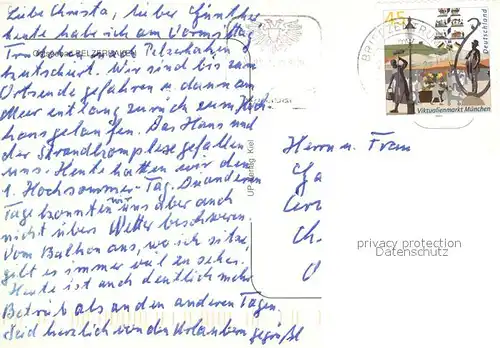 Liebe Christa, lieber Günther
heute habe ich am Vormittag
Ostseebad PELZERHAKEN
Pelzerhaken
kutschiert. Wir sind bis zum
Ortsende gefahren u. dann am
Meer entlang zurück zum Hoch
haus gelaufen. Das Haus und
der Strandkomplex gefallen
uns. Heute hatten wir den
1. Hochsommer-Tag. Die anderen
Tage konnten wir uns aber auch
nicht übers Wetter beschweren.
Vom Balkon aus, wo ich sitze,
gibt es immer viel zu sehen.
Heute ist auch deutlich mehr
Betrieb als an den anderen Tagen.
Seid herzlich von den Urlaubern gegrüßt
UP Verlag Kiel
BRIEFZENTRUM
45
Deutschland
Viktualienmarkt München
Herrn u. Frau
privacy protection
Datenschutz